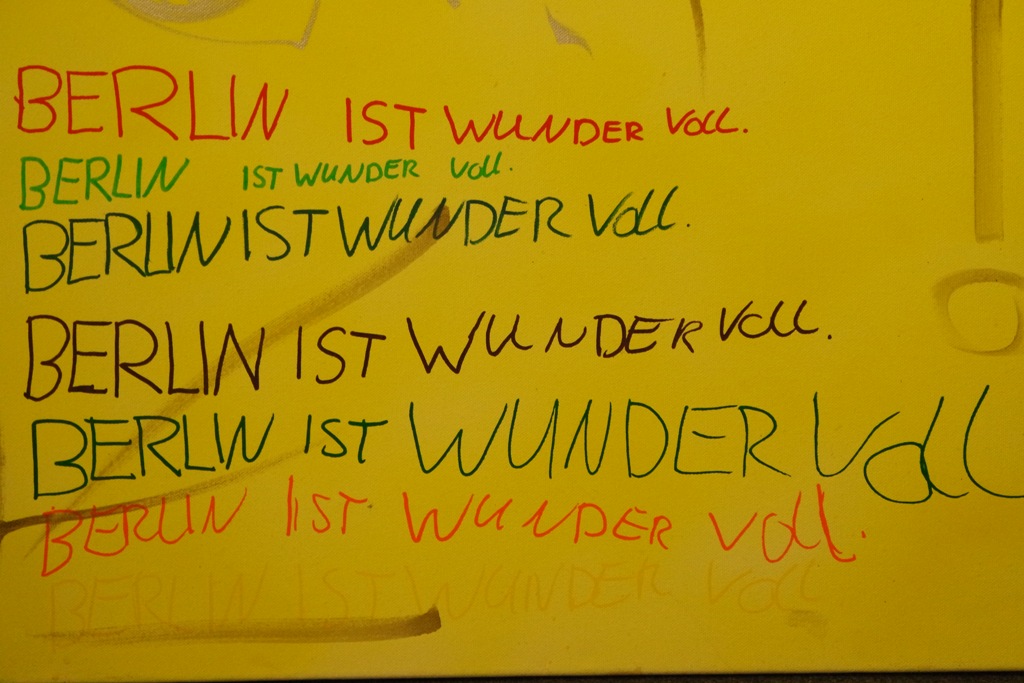 BERLIN IST WUNDER VOLL.
BERLIN IST WUNDER VOLL.
BERLIN IST WUNDER VOLL.
BERLIN IST WUNDER VOLL.
BERLIN IST WUNDER VOLL
BERLIN IST WUNDER VOLL.
BERLIN IST WUNDER VOLL